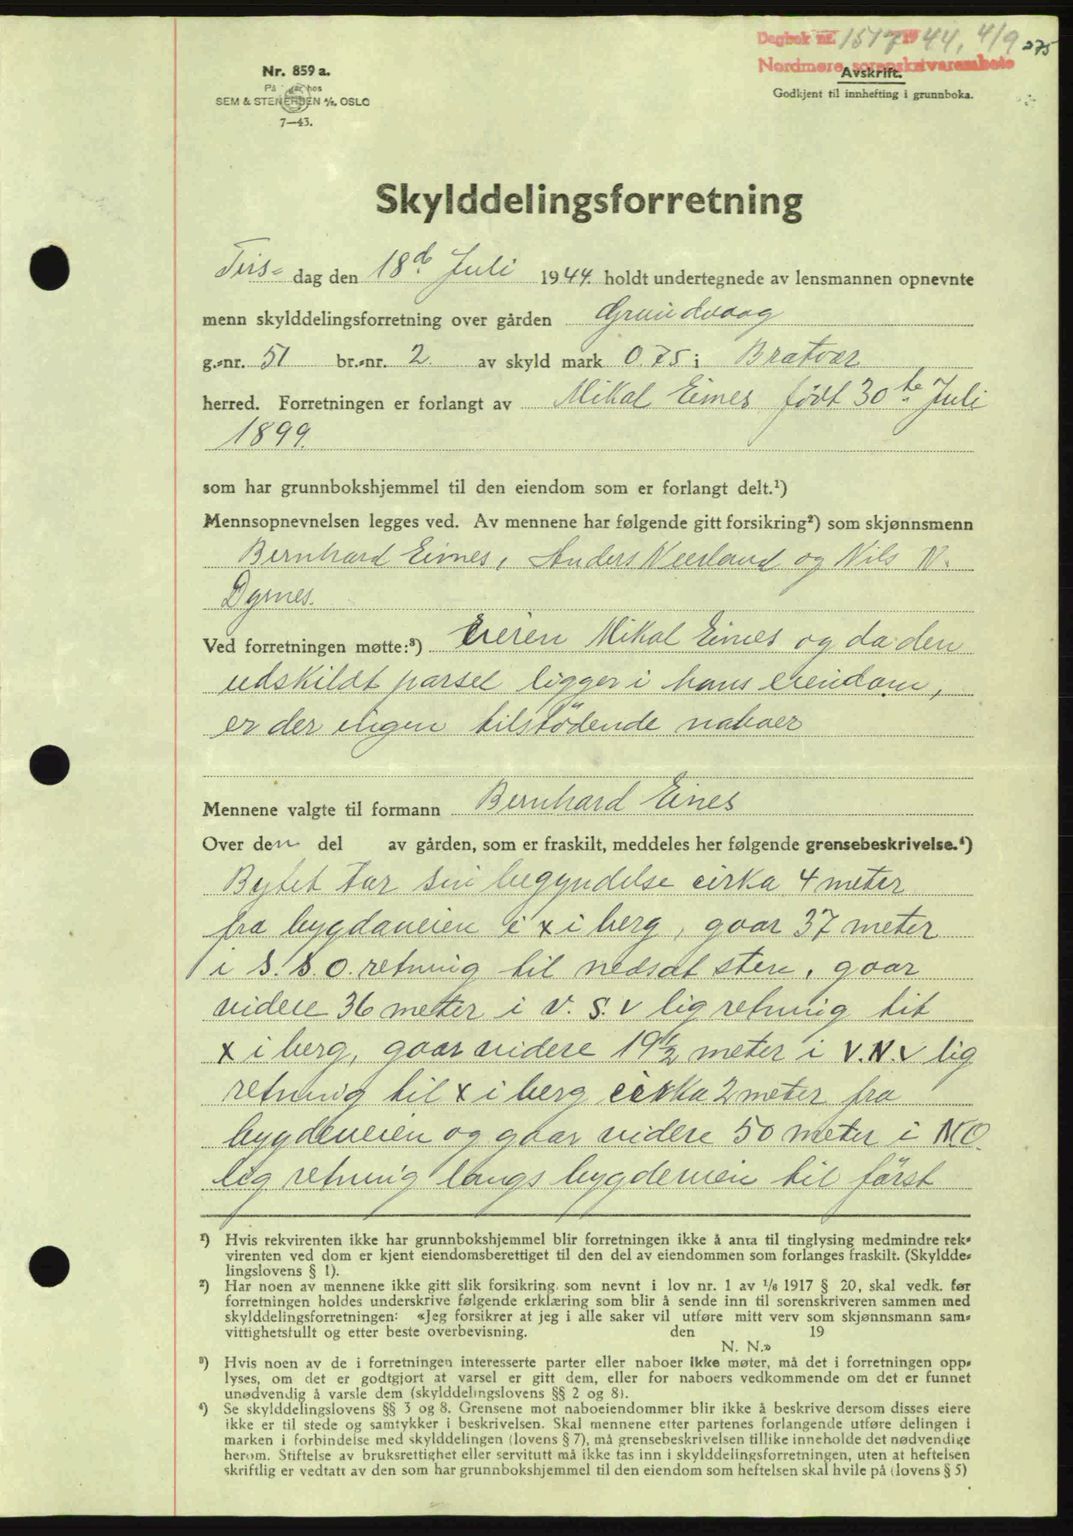 Dagbok nr. 1517 1944, 4/9 275
Nordmøre sorenskriverembete
Nr. 859 a.
På lager hos
SEM & STENERSEN A/S, OSLO
7—43.
Avskrift.
Godkjent til innhefting i grunnboka.
Skylddelingsforretning
Tirs- dag den 18de Juli 1944 holdt undertegnede av lensmannen opnevnte
menn skylddelingsforretning over gården Grundvaag
g.-nr. 51 br.-nr. 2. av skyld mark 0.75 i Bratvær
herred. Forretningen er forlangt av Mikal Eines født 30te Juli
1899.
som har grunnbokshjemmel til den eiendom som er forlangt delt.¹)
Mennsopnevnelsen legges ved. Av mennene har følgende gitt forsikring²) som skjønnsmenn
Bernhard Eines, Anders Neerland og Nils N.
Dyrnes.
Ved forretningen møtte:³) Eieren Mikal Eines og da den
udskildt parsel ligger i hans eiendom,
er der ingen tilstødende naboer
Mennene valgte til formann Bernhard Eines
Over den del av gården, som er fraskilt, meddeles her følgende grensebeskrivelse.⁴)
Bytet tar sin begyndelse cirka 4 meter
fra bygdaveien i x i berg, gaar 37 meter
i S.S.O. retning til nedsat sten, gaar
videre 36 meter i V.S.V lig retning til
x i berg, gaar videre 19 1/2 meter i V.N.V lig
retning til x i berg cirka 2 meter fra
bygdeveien og gaar videre 50 meter i NO.
lig retning langs bygdeveien til først
¹) Hvis rekvirenten ikke har grunnbokshjemmel blir forretningen ikke å anta til tinglysing medmindre rek-
virenten ved dom er kjent eiendomsberettiget til den del av eiendommen som forlanges fraskilt. (Skyldde-
lingslovens § 1).
²) Har noen av mennene ikke gitt slik forsikring som nevnt i lov nr. 1 av 1/6 1917 § 20, skal vedk. før
forretningen holdes underskrive følgende erklæring som blir å sende inn til sorenskriveren sammen med
skylddelingsforretningen: «Jeg forsikrer at jeg i alle saker vil utføre mitt verv som skjønnsmann sam-
vittighetsfullt og etter beste overbevisning. den 19
N. N.»
³) Hvis noen av de i forretningen interesserte parter eller naboer ikke møter, må det i forretningen opp-
lyses, om det er godtgjort at varsel er gitt dem, eller for naboers vedkommende om det er funnet
unødvendig å varsle dem (skylddelingslovens §§ 2 og 8).
⁴) Se skylddelingslovens §§ 3 og 8. Grensene mot naboeiendommer blir ikke å beskrive dersom disses eiere
ikke er til stede og samtykker i beskrivelsen. Skal mennene etter partenes forlangende utføre delingen i
marken i forbindelse med skylddelingen (lovens § 7), må grensebeskrivelsen tillike inneholde det nødvendige
herom. Stiftelse av bruksrettighet eller servitutt må ikke tas inn i skylddelingsforretningen, uten at heftelsen
skriftlig er vedtatt av den som har grunnbokshjemmel til den eiendom som heftelsen skal hvile på (lovens § 5)